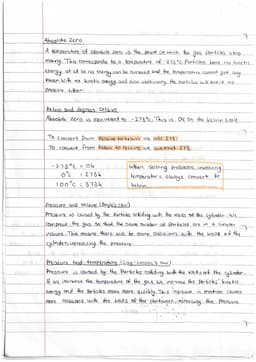 Absolute Zero
A temperature of absolute zero is the point at which the gas particles stop
moving. This corresponds to a temperature of -273°C. Particles have no kinetic
energy at all so no energy can be removed and the temperature cannot get any
lower. With no kinetic energy and now stationary, the particles will exert no
pressure.
Kelvin and Degrees Celsius
Absolute zero is equivalent to -273°C. This is 0K on the kelvin scale
To convert from Celsius to kelvin we add 273
To convert from kelvin to Celsius we subtract 273
-273°C = 0K
0°C = 273K
100°C = 373K
When solving problems involving
temperature always convert to
kelvin
Pressure and Volume (Boyle's law)
Pressure is caused by the particles colliding with the walls of the cylinder. We
compress the gas so that the same number of particles are in a smaller
volume. This means there will be more collisions with the walls of the
cylinder increasing the pressure.
Pressure and temperature (Gay-Lussac's law)
Pressure is caused by the particles colliding with the walls of the cylinder.
If we increase the temperature of the gas, we increase the particles' kinetic
energy and the particles move more quickly. This increase in motion causes
more collisions with the walls of the container, increasing the pressure.